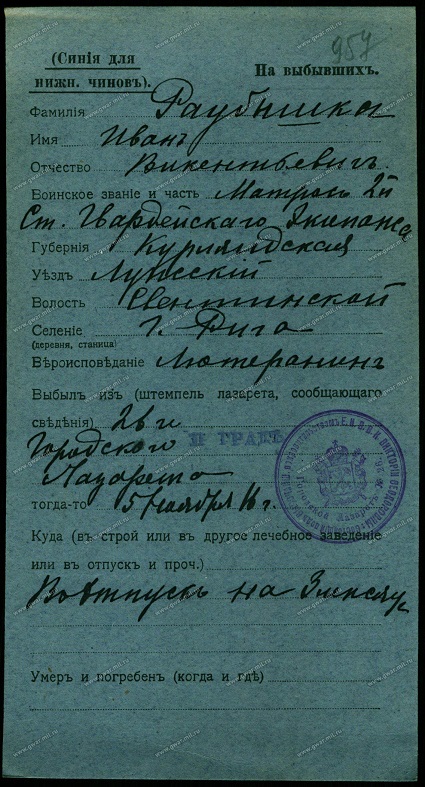 957
(Синія для
нижн. чиновъ).
На выбывшихъ.
Фамилія Раубишка
Имя Иванъ
Отчество Викентьевичъ
Воинское званіе и часть Матрос 2й
Ст. Гвардейскаго Экипажа
Губернія Курляндская
Уѣздъ
Волость
Селеніе г. Рига
(деревня, станица)
Вѣроисповѣданіе Лютеранинъ
Выбылъ изъ (штемпель лазарета, сообщающаго
свѣдѣнія) 26 й
Городского
Лазарета
тогда-то 5 Ноября 16 г.
Куда (въ строй или въ другое лечебное заведеніе
или въ отпускъ и проч.)
Въ Отпускъ на
Умеръ и погребенъ (когда и гдѣ)
www.gwar.mil.ru